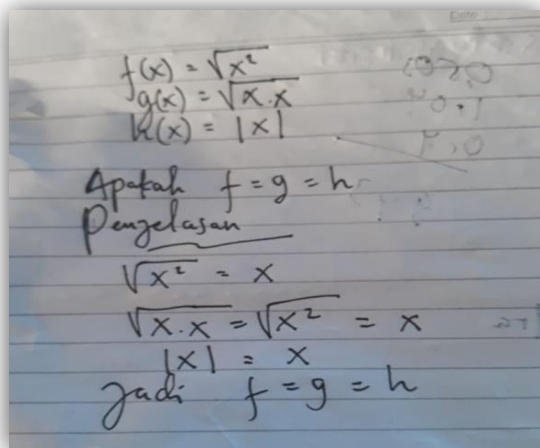 f(x) = √x²
g(x) = √x.x
h(x) = |x|
Apakah f = g = h
Penjelasan
√x² = x
√x.x = √x² = x
|x| = x
Jadi f = g = h